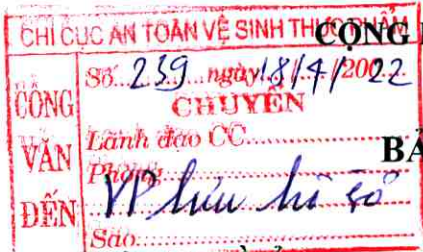 CHI CỤC AN TOÀN VỆ SINH THỰC PHẨM
CỘNG
CÔNG VĂN ĐẾN
Số 239 ngày 18/4/2022
CHUYỂN
Lãnh đạo CC
BẢ
Phòng
VP lưu hồ sơ
Sao